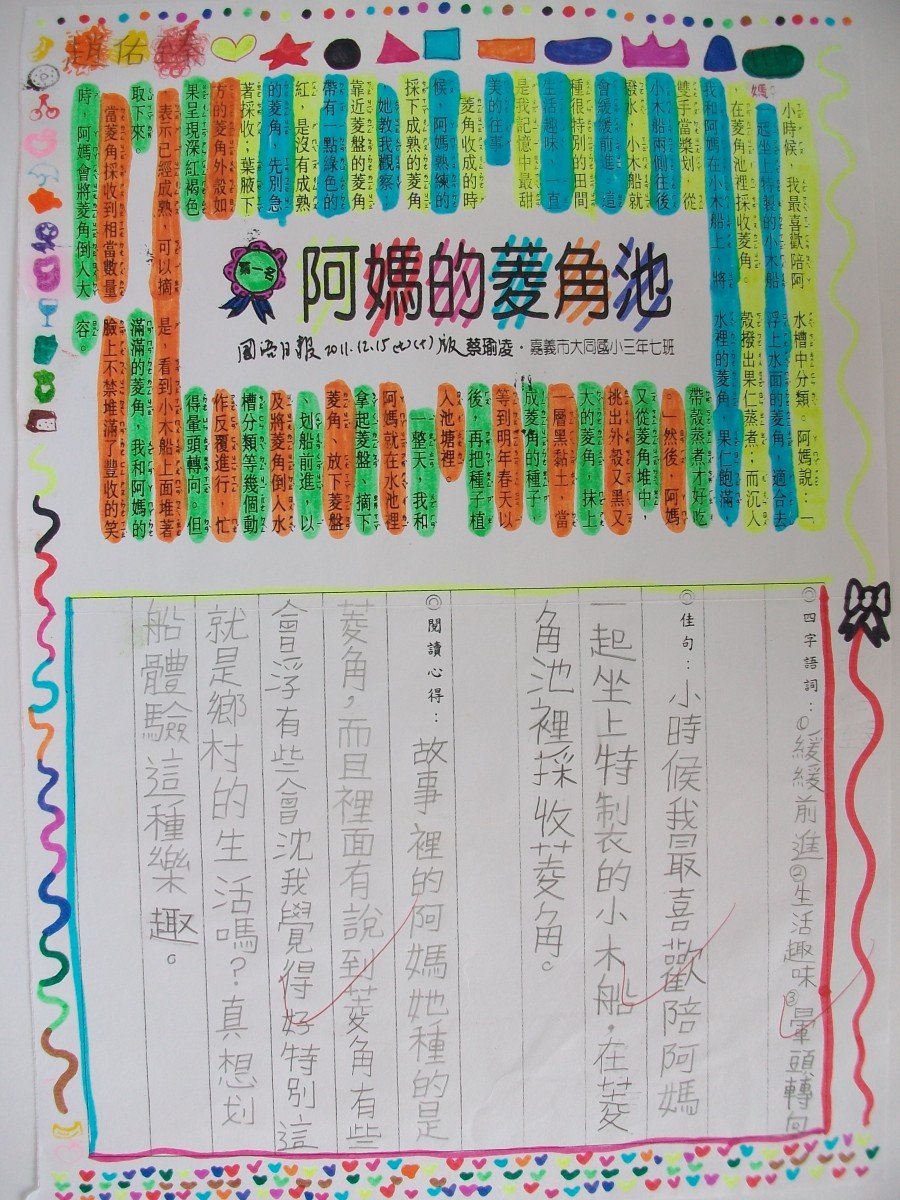 第一名
阿媽的菱角池
國語日報 2011.12.15(七)(十)版 蔡瑜凌．嘉義市大同國小三年七班
小時候，我最喜歡陪阿
媽一起坐上特製的小木船
，在菱角池裡採收菱角。
我和阿媽在小木船上，將
雙手當槳划，從
小木船兩側往後
撥水，小木船就
會緩緩前進，這
種很特別的田間
生活趣味，一直
是我記憶中最甜
美的往事。
菱角收成的時
候，阿媽熟練的
採下成熟的菱角
，她教我觀察，
靠近菱盤的菱角
帶有一點綠色的
紅，是沒有成熟
的菱角，先別急
著採收，葉腋下
方的菱角外殼如
果呈現深紅褐色
表示已經成熟，可以摘
取下來。
當菱角採收到相當數量
時，阿媽會將菱角倒入大
水槽中分類。阿媽說：「
浮上水面的菱角，適合去
殼撥出果仁蒸煮；而沉入
水裡的菱角，果仁飽滿，
帶殼蒸煮才好吃
。」然後，阿媽
又從菱角堆中，
挑出外殼又黑又
大的菱角，抹上
一層黑黏土，當
成菱角的種子，
等到明年春天以
後，再把種子植
入池塘裡。
一整天，我和
阿媽就在水池裡
拿起菱盤、摘下
菱角、放下菱盤
、划船前進，以
及將菱角倒入水
槽分類等幾個動
作反覆進行，忙
得暈頭轉向。但
是，看到小木船上面堆著
滿滿的菱角，我和阿媽的
臉上不禁堆滿了豐收的笑
容。
◎四字語詞：①緩緩前進②生活趣味③暈頭轉向
◎佳句：小時候我最喜歡陪阿媽
一起坐上特制裝的小木船，在菱
角池裡採收菱角。
◎閱讀心得：故事裡的阿媽她種的是
菱角，而且裡面有說到菱角有些
會浮有些會沈我覺得好特別這
就是鄉村的生活嗎？真想划
船體驗這種樂趣。